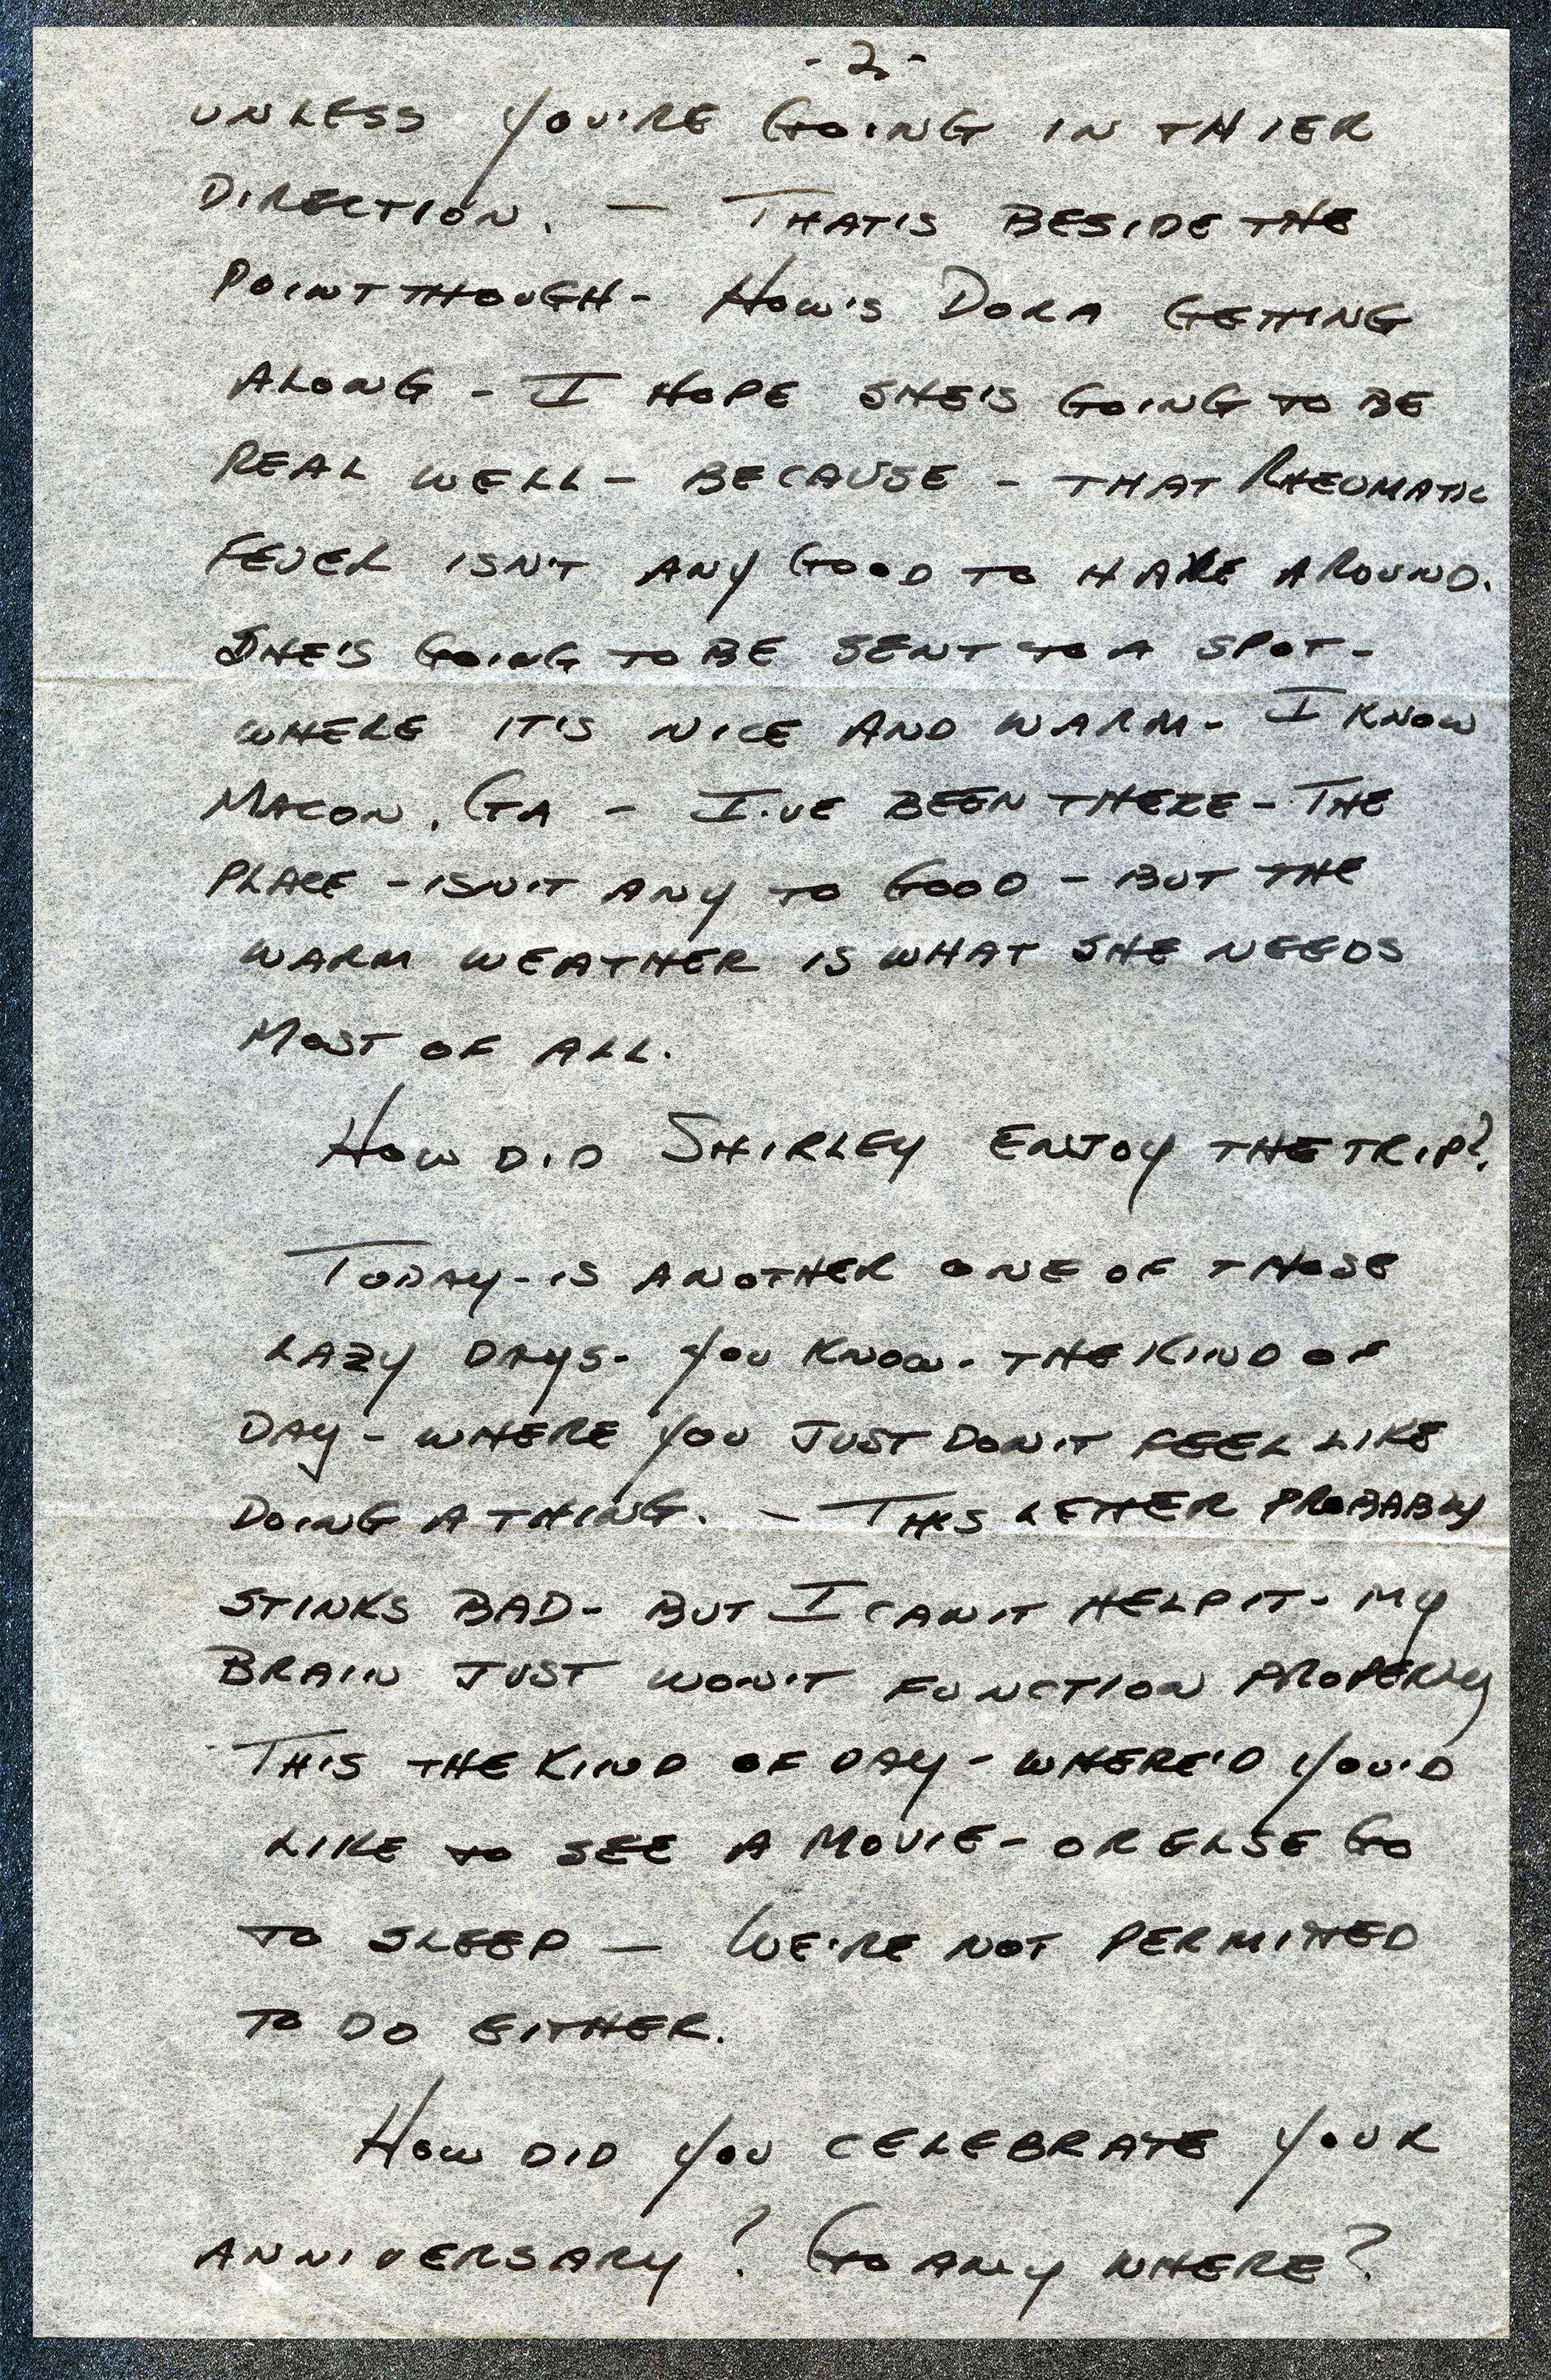 -2-
UNLESS YOU'RE GOING IN THIER
DIRECTION. — THAT'S BESIDE THE
POINT THOUGH- HOW'S DORA GETTING
ALONG - I HOPE SHE'S GOING TO BE
REAL WELL - BECAUSE - THAT RHEUMATIC
FEVER ISN'T ANY GOOD TO HAVE AROUND.
SHE'S GOING TO BE SENT TO A SPOT-
WHERE IT'S NICE AND WARM- I KNOW
MACON, GA - I'VE BEEN THERE - THE
PLACE - ISN'T ANY TO GOOD - BUT THE
WARM WEATHER IS WHAT SHE NEEDS
MOST OF ALL.
HOW DID SHIRLEY ENJOY THE TRIP?
TODAY - IS ANOTHER ONE OF THOSE
LAZY DAYS- YOU KNOW- THE KIND OF
DAY - WHERE YOU JUST DON'T FEEL LIKE
DOING A THING. - THIS LETTER PROBABLY
STINKS BAD- BUT I CAN'T HELP IT- MY
BRAIN JUST WON'T FUNCTION PROPERLY
THIS THE KIND OF DAY - WHERE'D YOU'D
LIKE TO SEE A MOVIE - OR ELSE GO
TO SLEEP — WE'RE NOT PERMITTED
TO DO EITHER.
HOW DID YOU CELEBRATE YOUR
ANNIVERSARY? GO ANY WHERE?